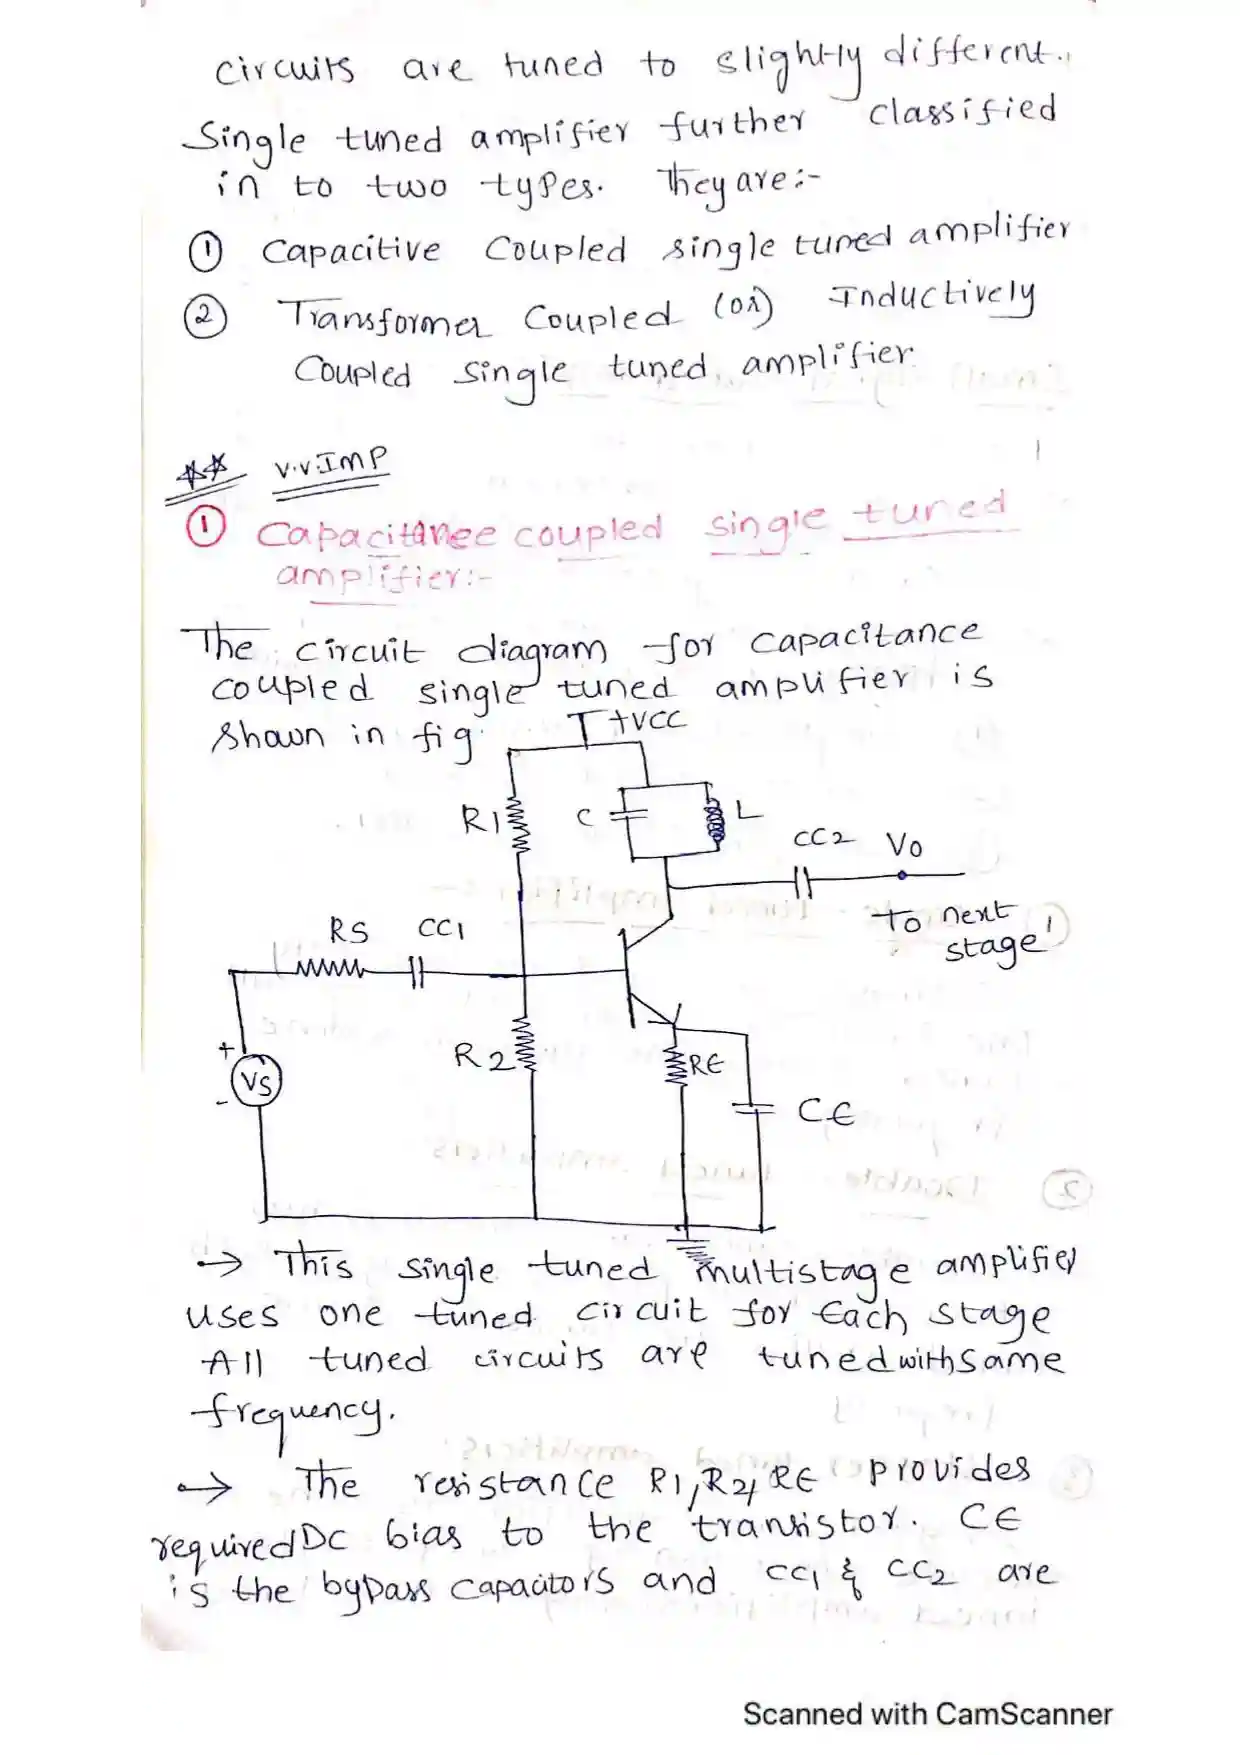 circuits are tuned to slightly different.
Single tuned amplifier further classified
in to two types. They are:-
① Capacitive Coupled single tuned amplifier
② Transformer Coupled (or) Inductively
Coupled single tuned amplifier
** V.V.IMP
① Capacitance coupled single tuned
amplifier:-
The circuit diagram for capacitance
coupled single tuned amplifier is
shown in fig.
+VCC
R1
C
L
CC2
Vo
To next
stage
RS
CC1
R2
RE
+
VS
-
CE
→ This single tuned multistage amplifier
uses one tuned circuit for Each stage
All tuned circuits are tuned with same
frequency.
→ The resistance R1, R2, RE provides
required DC bias to the transistor. CE
is the bypass capacitors and CC1 & CC2 are
Scanned with CamScanner